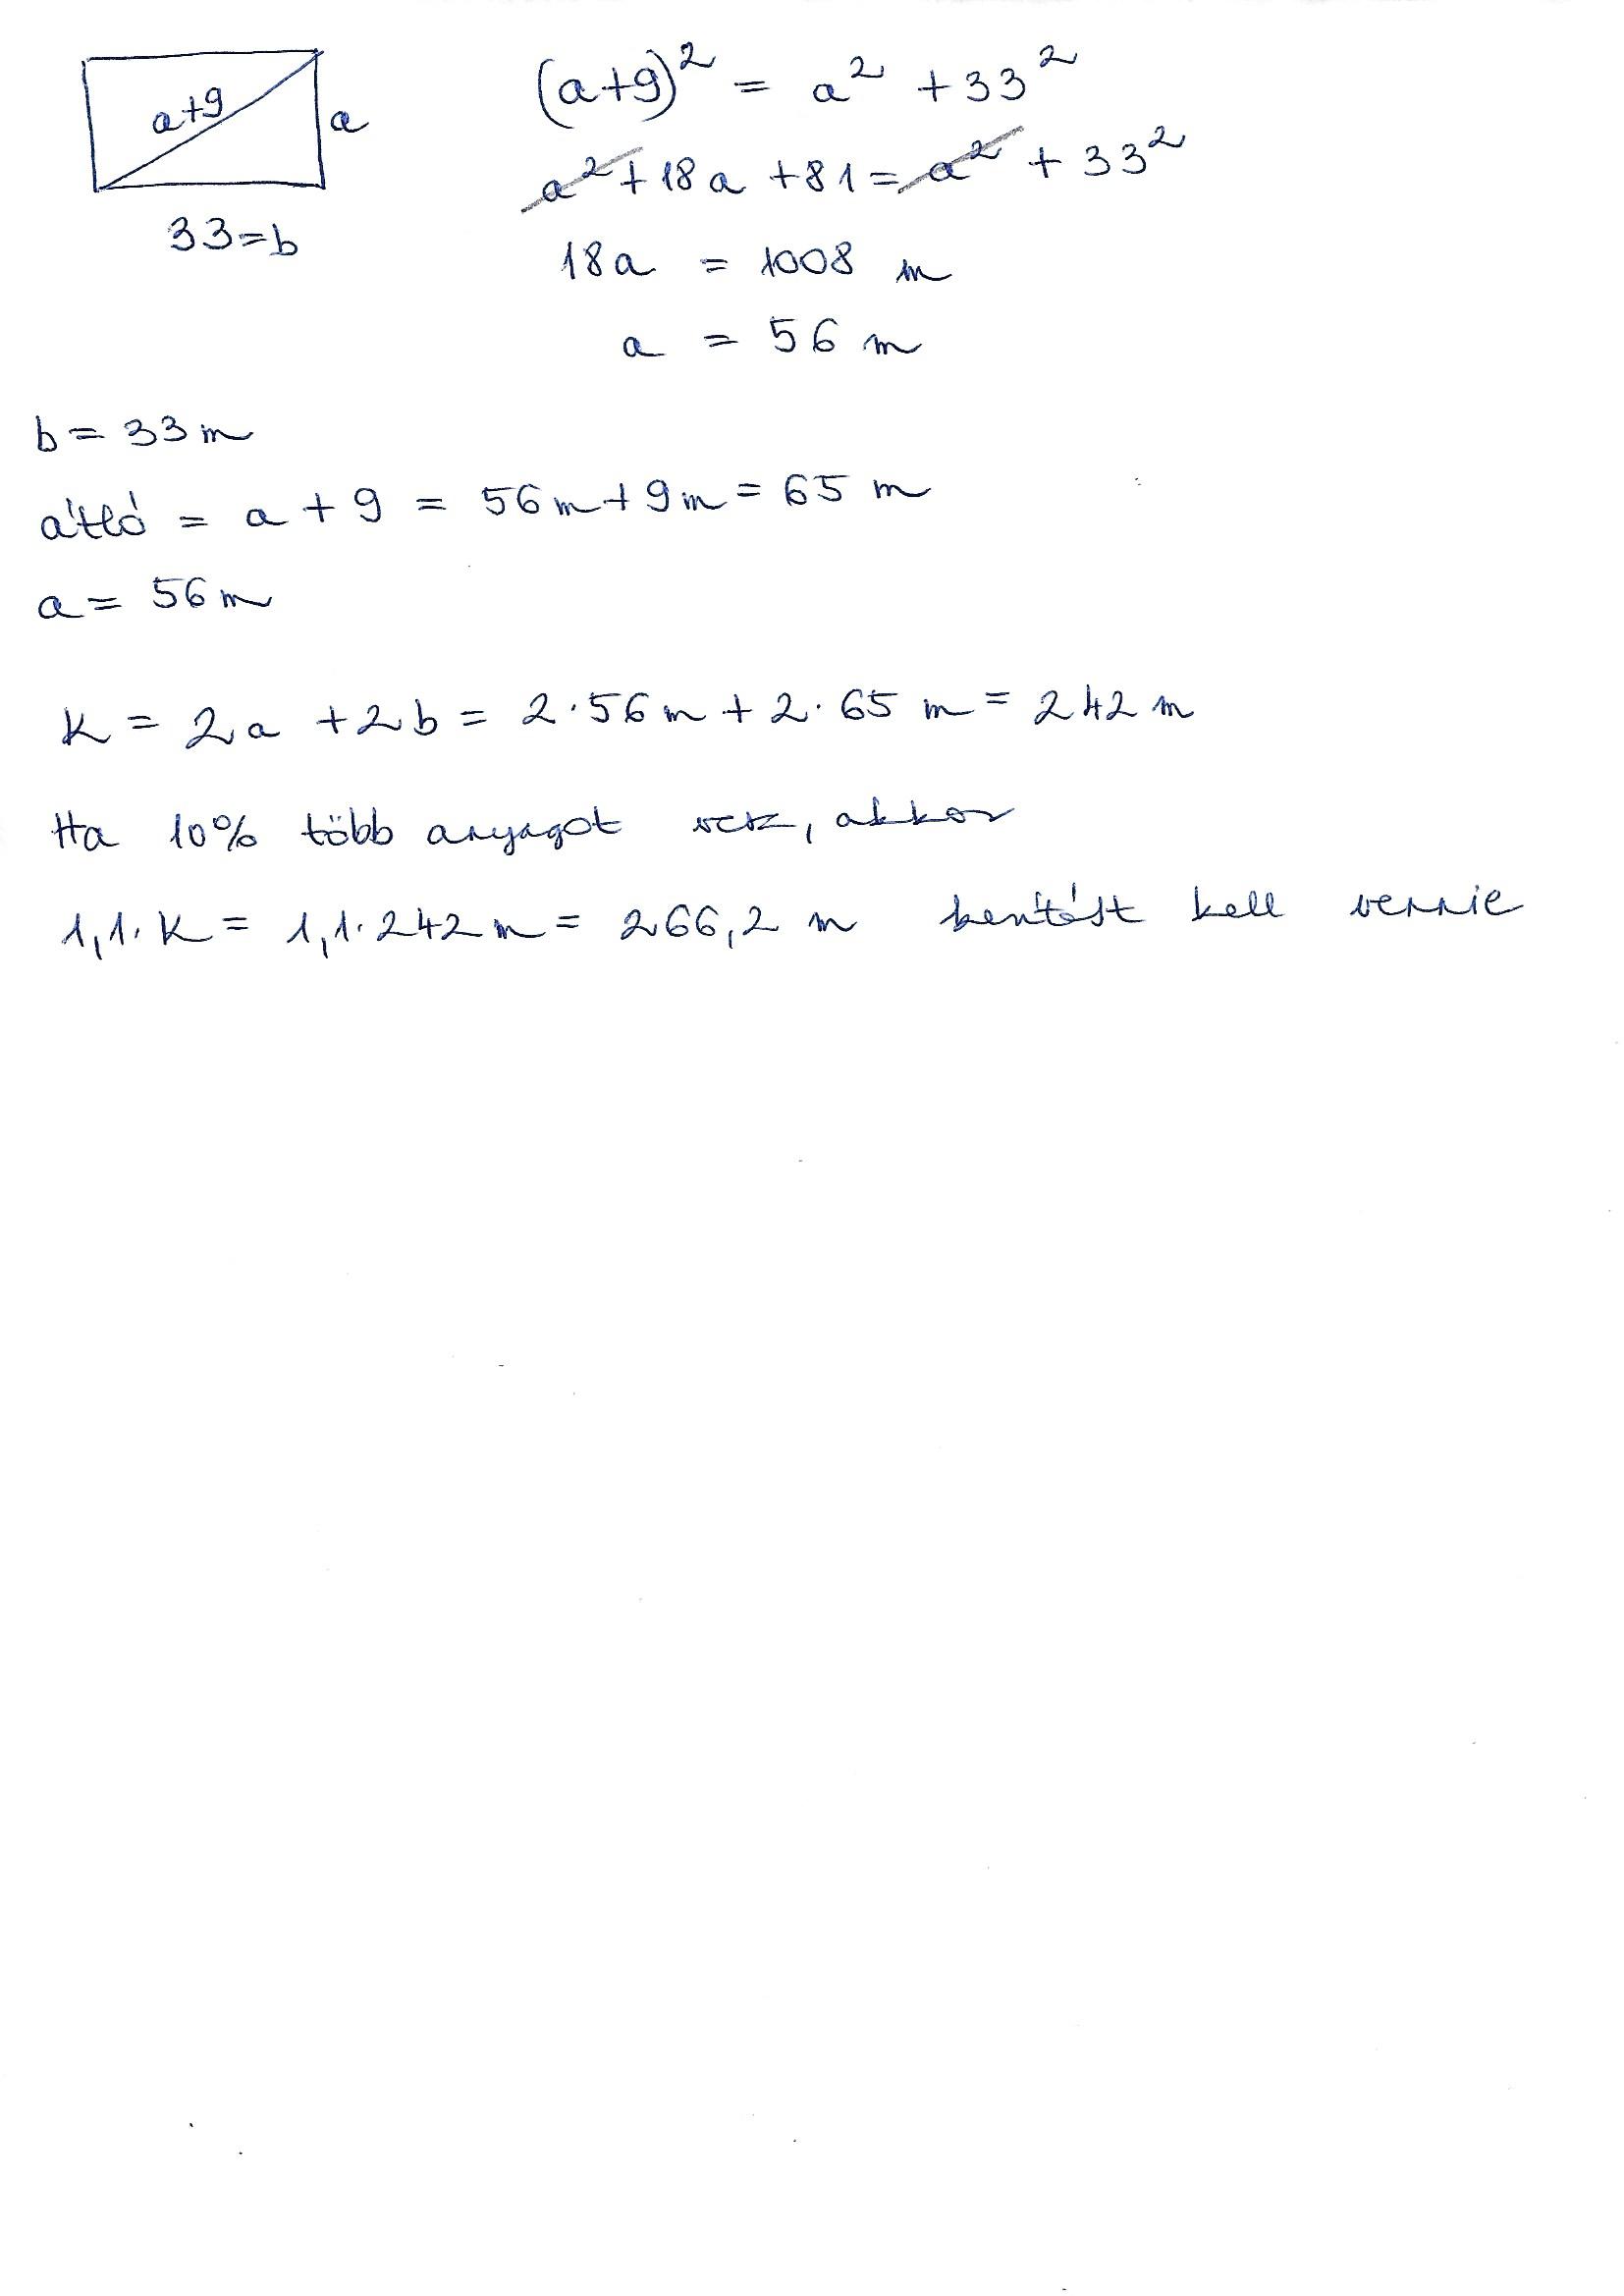 a+9
a
33=b
(a+9)² = a² + 33²
a² + 18a + 81 = a² + 33²
18a = 1008 m
a = 56 m
b = 33 m
átló = a + 9 = 56 m + 9 m = 65 m
a = 56 m
K = 2a + 2b = 2·56 m + 2·65 m = 242 m
Ha 10% több anyagot vesz, akkor
1,1·K = 1,1·242 m = 266,2 m kerítést kell vennie